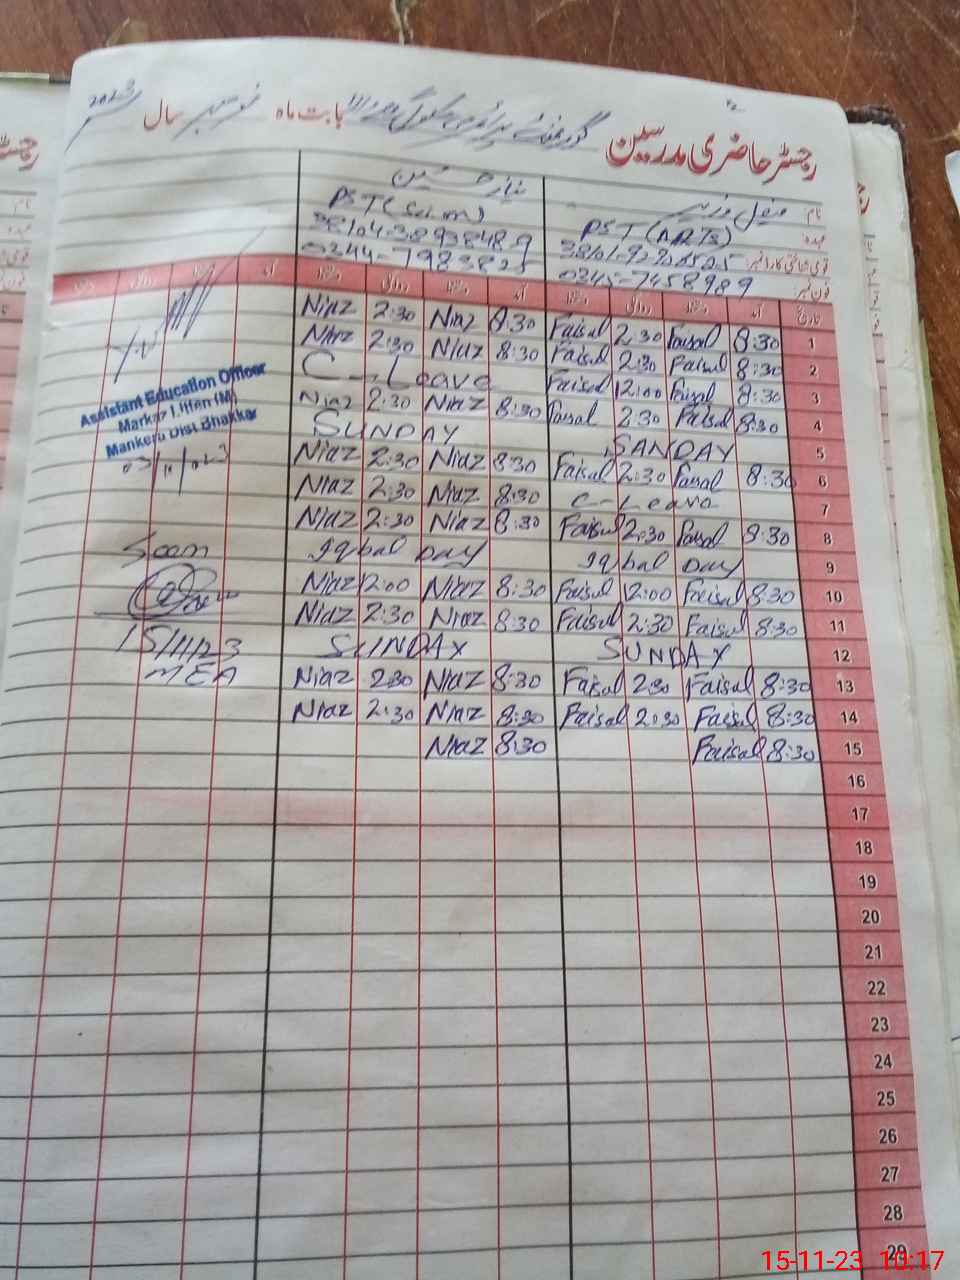 رجسٹر حاضری مدرسین گورنمنٹ پرائمری سکول بابت ماہ نومبر سال 2023
نام: فیصل وزیر نیاز حسین
عہدہ: PST (ARTS) PST (
قومی شناختی کارڈ نمبر:
فون نمبر: 0345-7458989 0244-7983825
تاریخ آمد دستخط روانگی دستخط آمد دستخط روانگی دستخط آمد دستخط روانگی دستخط
Niaz 2:30 Niaz 8:30 Faisal 2:30 Faisal 8:30 1
Niaz 2:30 Niaz 8:30 Faisal 2:30 Faisal 8:30 2
C-Leave Faisal 12:00 Faisal 8:30 3
Niaz 2:30 Niaz 8:30 Faisal 2:30 Faisal 8:30 4
SUNDAY SANDAY 5
Niaz 2:30 Niaz 8:30 Faisal 2:30 Faisal 8:30 6
Niaz 2:30 Niaz 8:30 C-Leave 7
Niaz 2:30 Niaz 8:30 Faisal 2:30 Faisal 8:30 8
Iqbal DAY Iqbal DAY 9
Niaz 12:00 Niaz 8:30 Faisal 12:00 Faisal 8:30 10
Niaz 2:30 Niaz 8:30 Faisal 2:30 Faisal 8:30 11
SUNDAY SUNDAY 12
Niaz 2:30 Niaz 8:30 Faisal 2:30 Faisal 8:30 13
Niaz 2:30 Niaz 8:30 Faisal 2:30 Faisal 8:30 14
Niaz 8:30 Faisal 8:30 15
16
17
18
19
20
21
22
23
24
25
26
27
28
29
Assistant Education Officer
Markaz
Mankera Dist Bhakkar
03/11/023
Seen
15/11/23
MEA
15-11-23 10:17